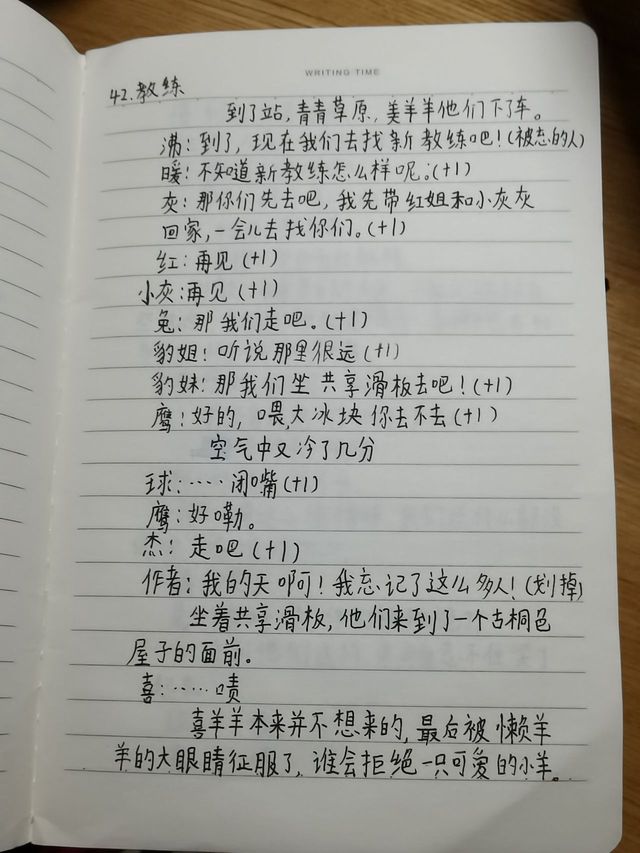 WRITING TIME
42.教练
到了站,青青草原,美羊羊他们下了车。
沸:到了,现在我们去找新教练吧!(被忘的人)
暖:不知道新教练怎么样呢。(+1)
灰:那你们先去吧,我先带红姐和小灰灰
回家,一会儿去找你们。(+1)
红:再见(+1)
小灰:再见(+1)
兔:那我们走吧。(+1)
豹姐:听说那里很远(+1)
豹妹:那我们坐共享滑板去吧!(+1)
鹰:好的,喂,大冰块你去不去(+1)
空气中又冷了几分
球:····闭嘴(+1)
鹰:好嘞。
杰:走吧(+1)
作者:我的天啊!我忘记了这么多人!(划掉)
坐着共享滑板,他们来到了一个古桐色
屋子的面前。
喜:·····啧
喜羊羊本来并不想来的,最后被懒羊
羊的大眼睛征服了,谁会拒绝一只可爱的小羊。